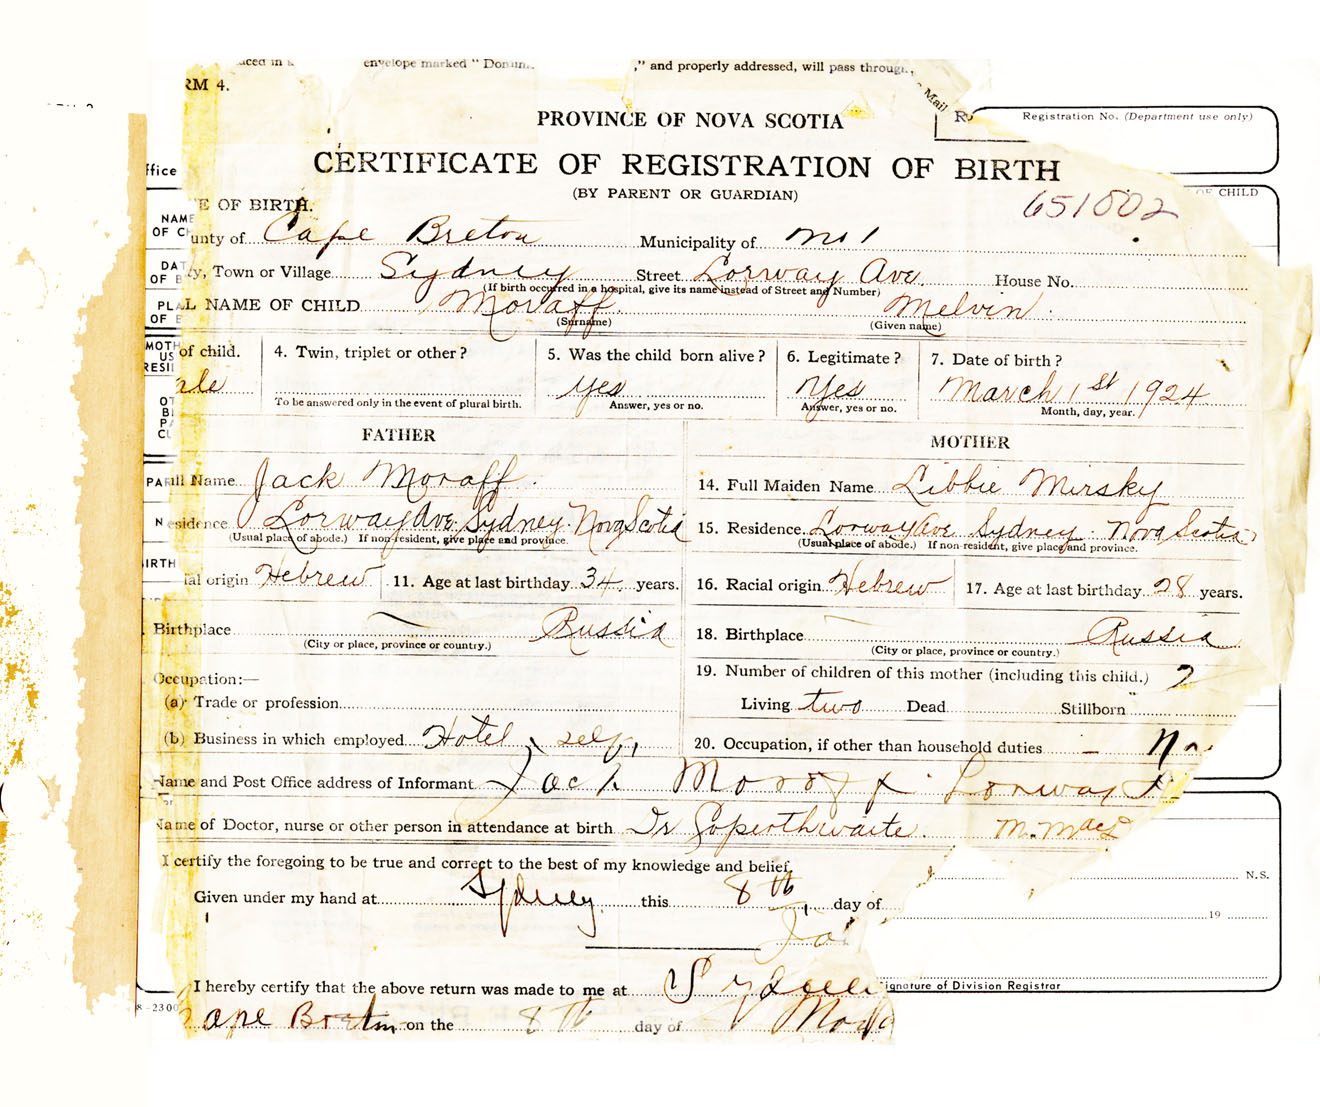 envelope marked "
," and properly addressed, will pass through
Mail
RM 4.
PROVINCE OF NOVA SCOTIA
Registration No. (Department use only)
CERTIFICATE OF REGISTRATION OF BIRTH
(BY PARENT OR GUARDIAN)
651802
OF CHILD
ffice
E OF BIRTH.
NAME
OF CH
unty of Cape Breton Municipality of No 1
DAT
OF B
y, Town or Village Sydney Street Lorway Ave. House No.
(If birth occurred in a hospital, give its name instead of Street and Number)
PLA
OF B
L NAME OF CHILD Moraff Melvin
(Surname) (Given name)
MOTH
US
RESI
of child. 4. Twin, triplet or other? 5. Was the child born alive? 6. Legitimate? 7. Date of birth?
ale yes Yes March 1st 1924
To be answered only in the event of plural birth. Answer, yes or no. Answer, yes or no. Month, day, year.
OT
BI
PA
CL
FATHER MOTHER
PAR
ll Name Jack Moraff. 14. Full Maiden Name Libbie Mirsky
N
esidence Lorway Ave. Sydney. Nova Scotia 15. Residence Lorway Ave Sydney Nova Scotia
(Usual place of abode.) If non-resident, give place and province. (Usual place of abode.) If non-resident, give place and province.
BIRTH
ial origin Hebrew 11. Age at last birthday 34 years. 16. Racial origin Hebrew 17. Age at last birthday 28 years.
Birthplace Russia 18. Birthplace Russia
(City or place, province or country.) (City or place, province or country.)
19. Number of children of this mother (including this child.) 2
Occupation:—
(a) Trade or profession Living two Dead Stillborn "
(b) Business in which employed Hotel, self, 20. Occupation, if other than household duties — No
Name and Post Office address of Informant Jack Moraff Lorway A
Name of Doctor, nurse or other person in attendance at birth Dr Coperthwaite. M. Mac
I certify the foregoing to be true and correct to the best of my knowledge and belief,
N.S.
Given under my hand at Sydney this 8th day of
19
I hereby certify that the above return was made to me at Sydney
ignature of Division Registrar
8-2300
Cape Breton on the 8th day of